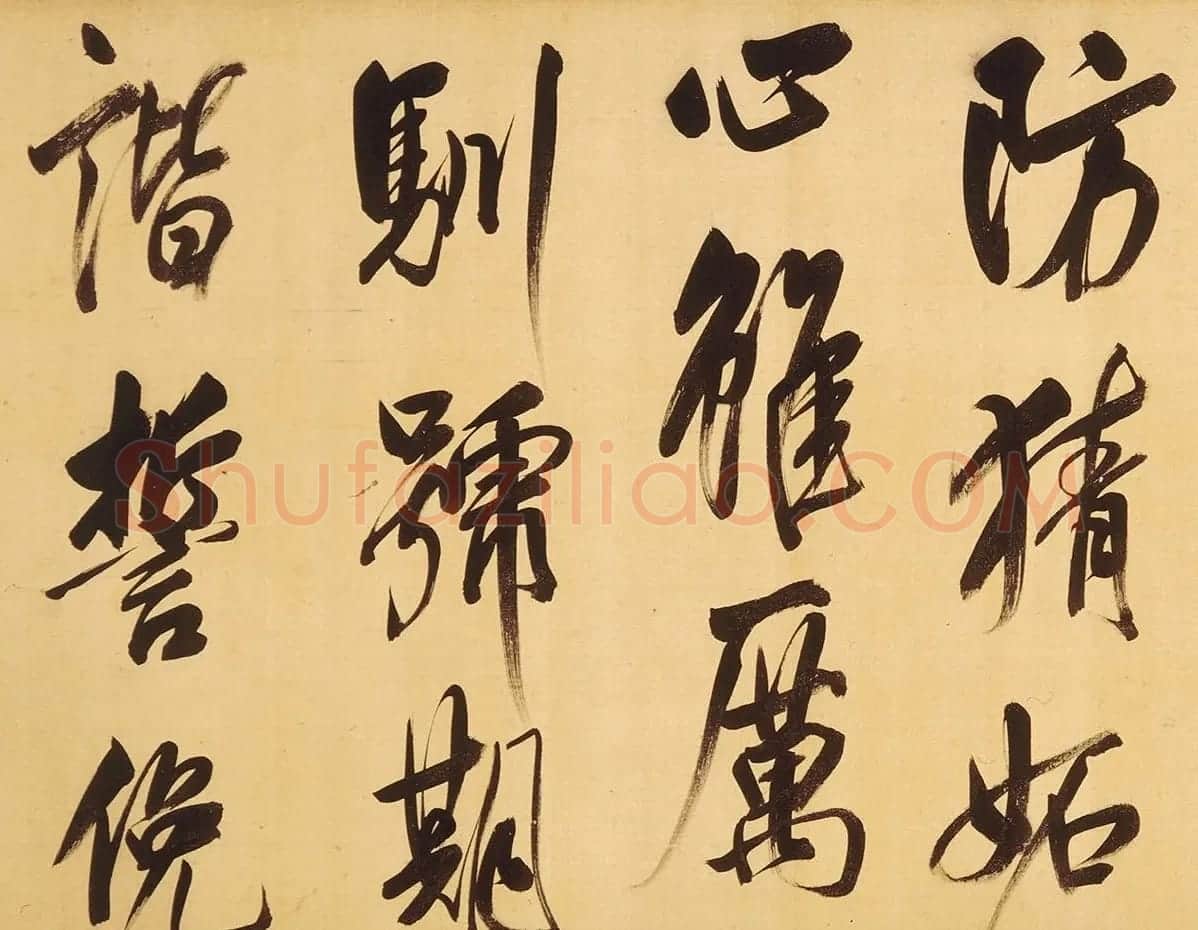 防猜妬
心雖厲
馴號期
諧誓俛
Shufaziliao.COM